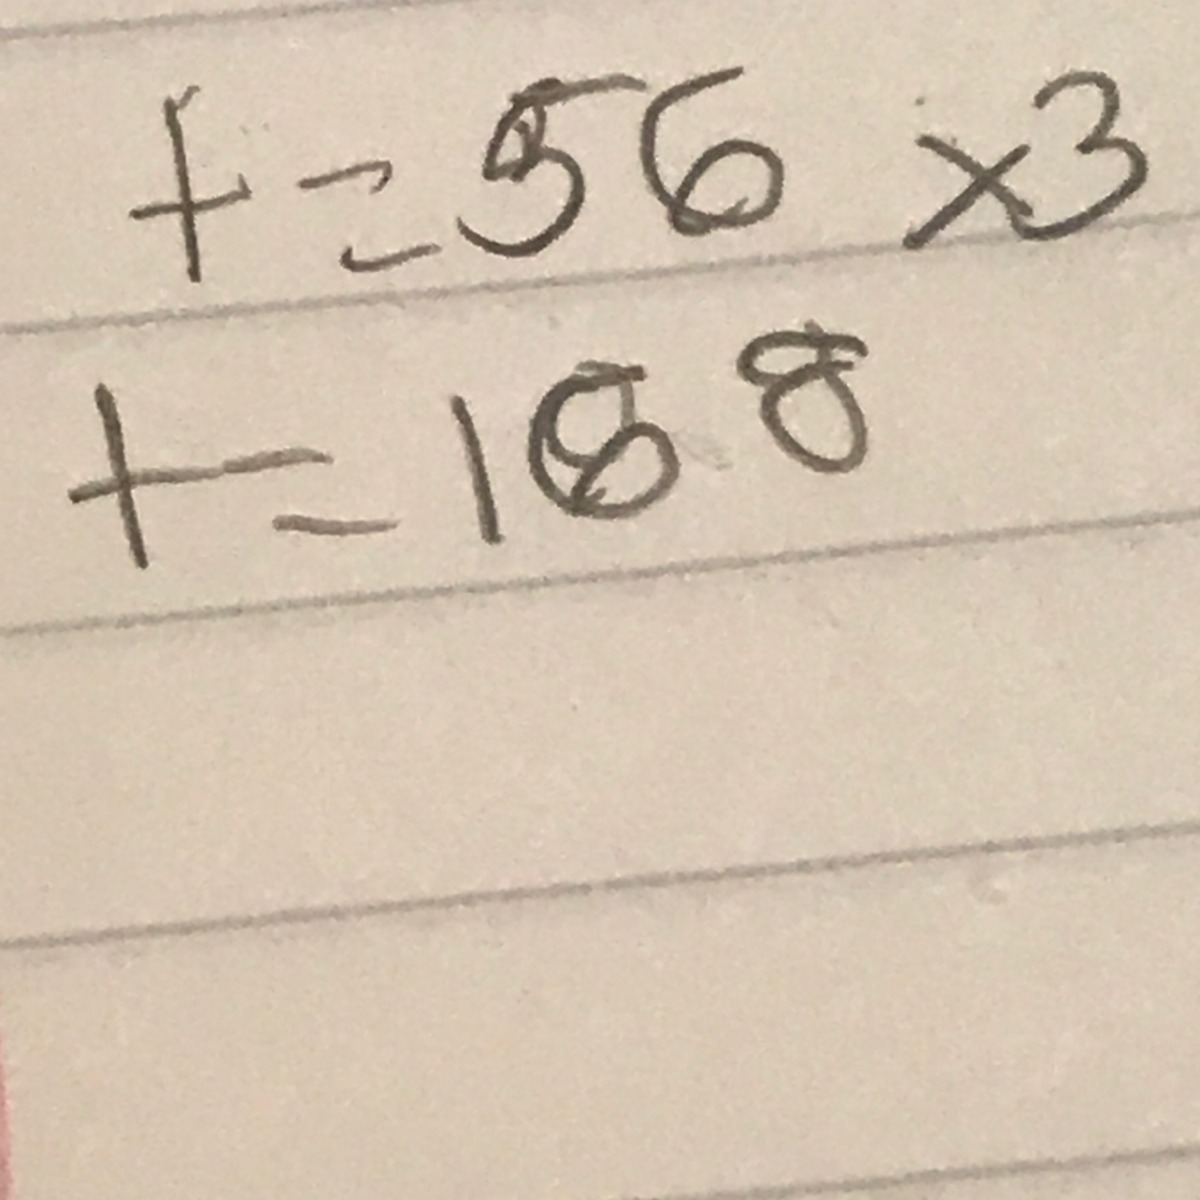 t = 56 x3
t = 168